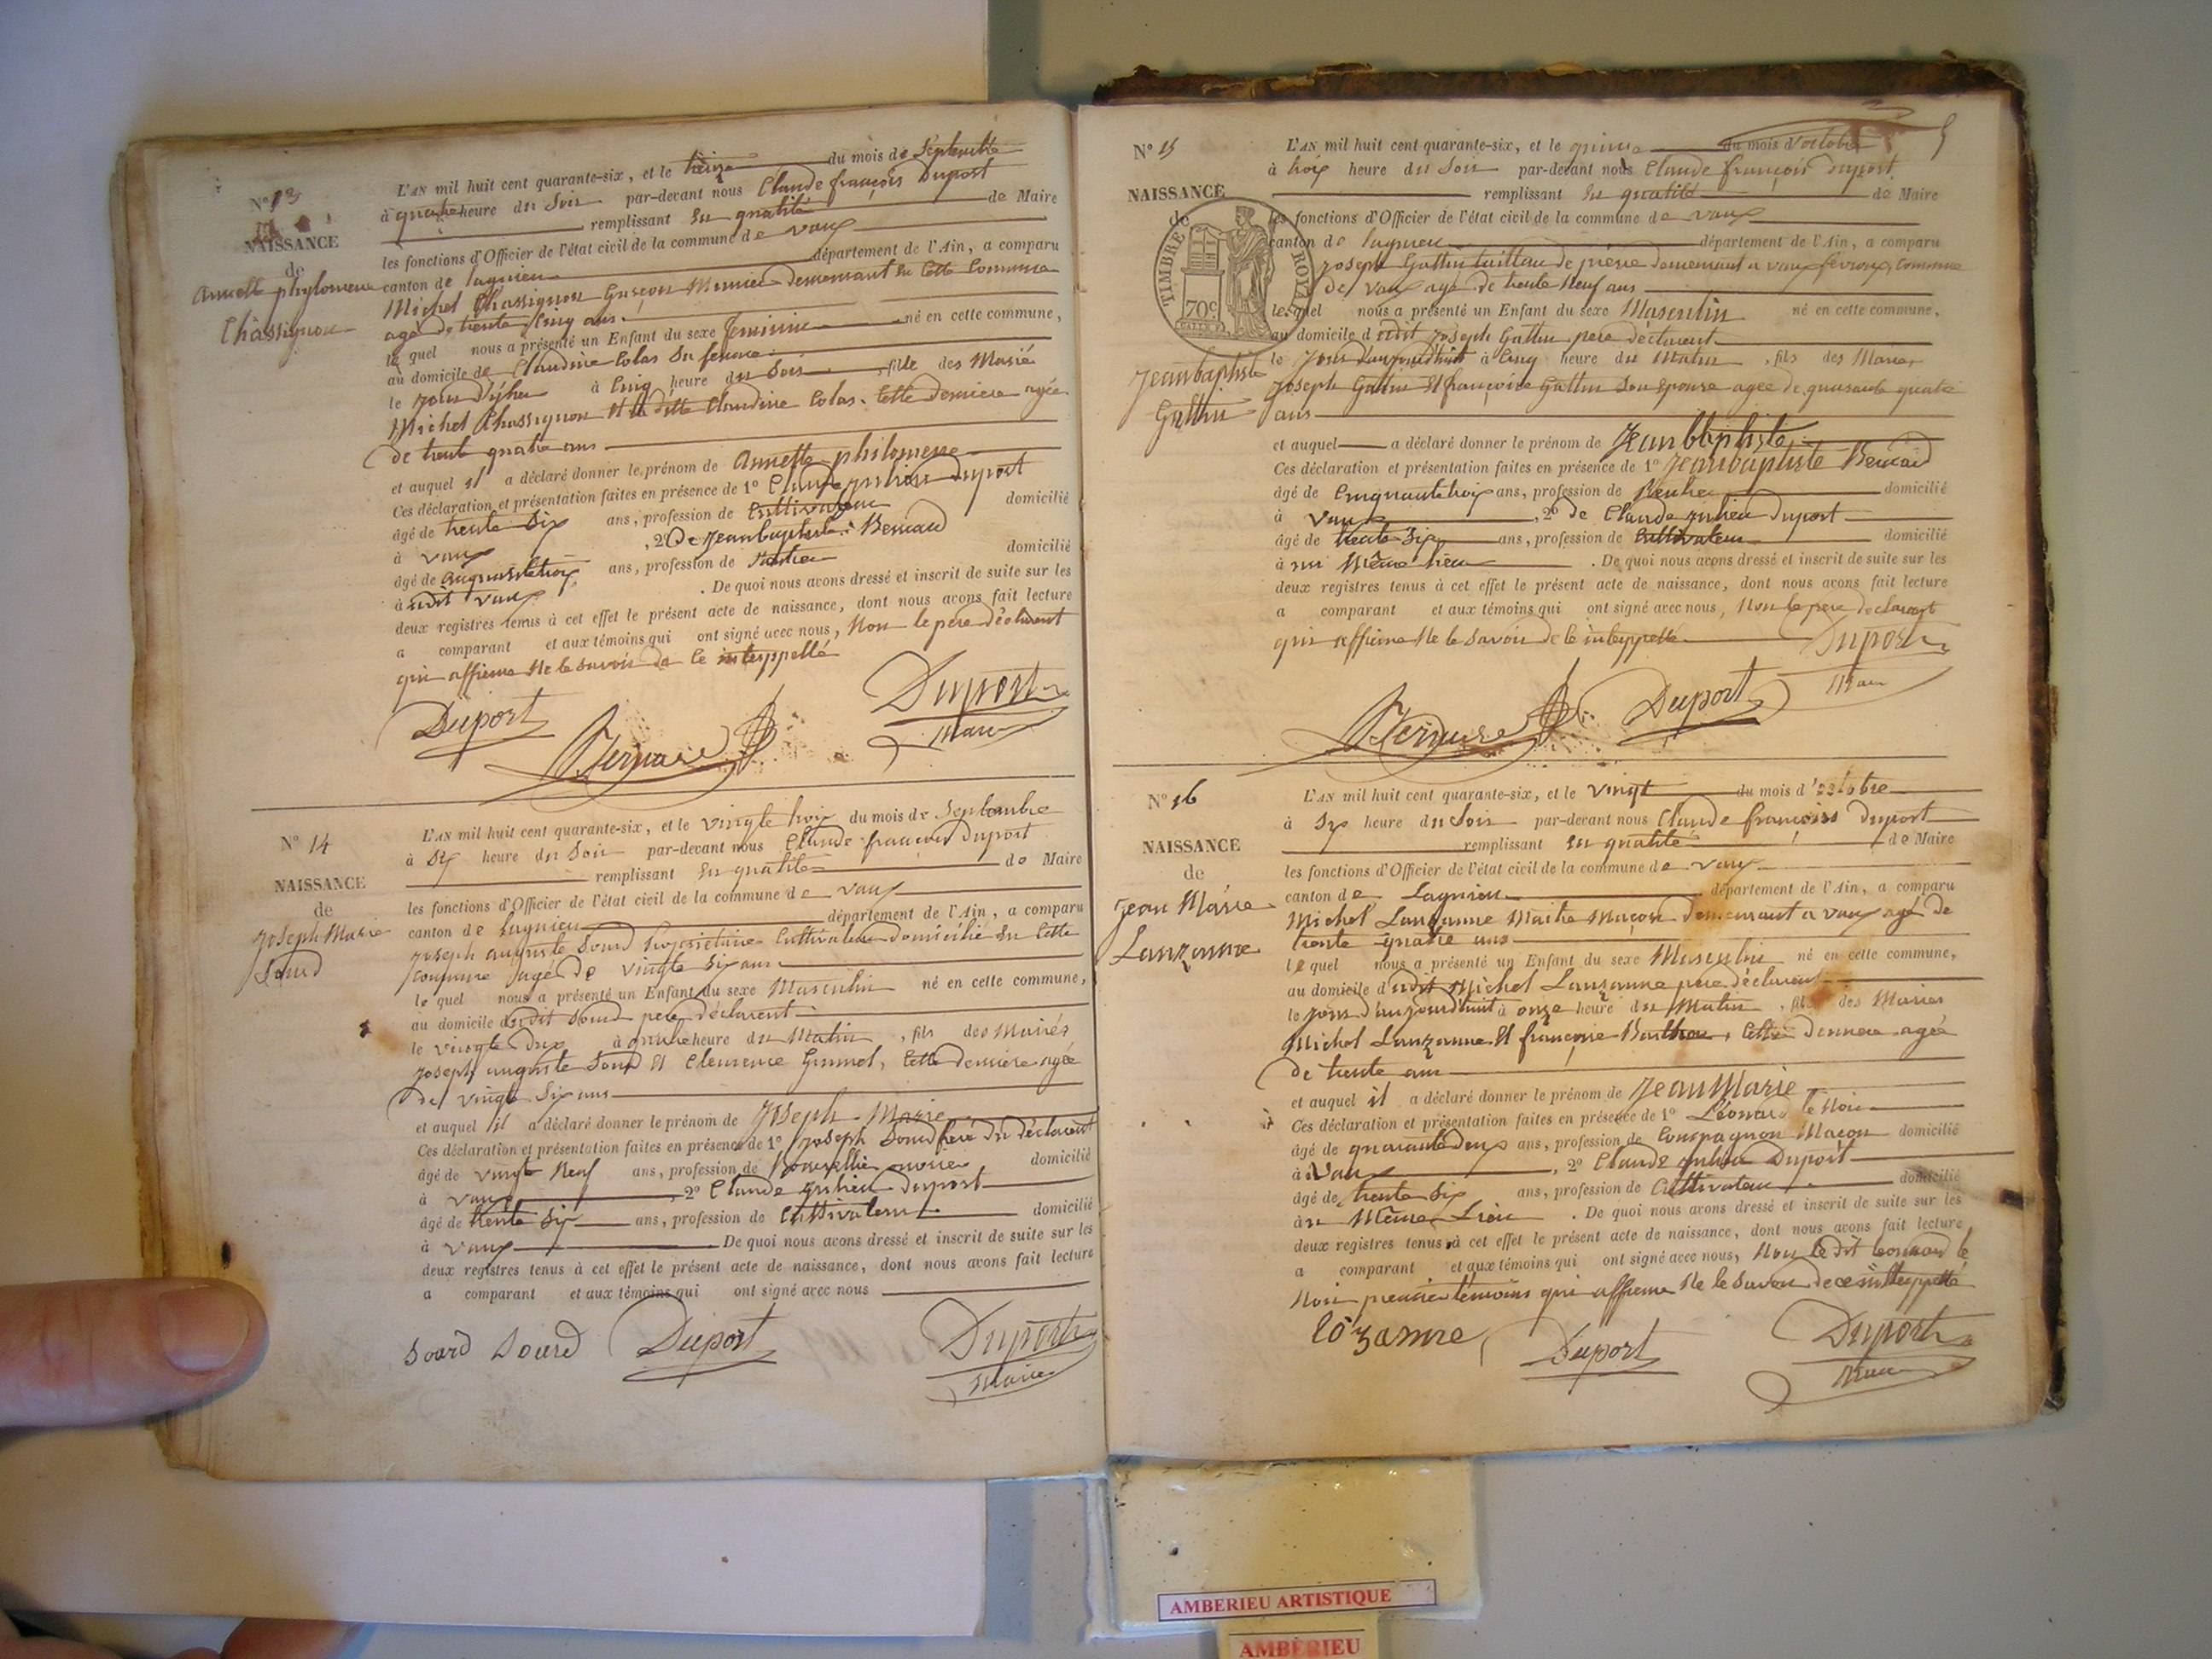 N° 13
NAISSANCE
de
Annette phylomene
Chassignon
L'AN mil huit cent quarante-six, et le treize du mois de Septembre
à quatre heure du Soir par-devant nous Claude françois Duport
remplissant en qualité de Maire
les fonctions d'Officier de l'état civil de la commune de vaux
canton de lagnieu département de l'Ain, a comparu
Michel Chassignon Garçon Meunier demeurant en Cette Commune
agé de trente Cinq ans
le quel nous a présenté un Enfant du sexe feminin né en cette commune,
au domicile de Claudine Colas Sa femme
le jour d'yher à Cinq heure du Soir, fille des Marié
Michel Chassignon Et la ditte Claudine Colas. Cette derniere agée
de trente quatre ans
et auquel il a déclaré donner le prénom de Annette philomene
Ces déclaration et présentation faites en présence de 1° Claude julien duport
âgé de trente Six ans, profession de Cultivateur domicilié
à vaux, 2° De Jeanbaptiste Bernard
âgé de Cinquantetrois ans, profession de Rentier domicilié
à udit vaux. De quoi nous avons dressé et inscrit de suite sur les
deux registres tenus à cet effet le présent acte de naissance, dont nous avons fait lecture
a comparant et aux témoins qui ont signé avec nous, Non le pere déclarent
qui affirme Ne le Savoir de ce interppellé
Duport Bernard Duport
Maire
N° 14
NAISSANCE
de
Joseph Marie
Sourd
L'AN mil huit cent quarante-six, et le vingte trois du mois de Septembre
à Six heure du Soir par-devant nous Claude françois Duport
remplissant en qualité de Maire
les fonctions d'Officier de l'état civil de la commune de vaux
canton de Lagnieu département de l'Ain, a comparu
joseph auguste Sourd Propriétaire Cultivateur domicilié en Cette
Commune agé de vingte Six ans
le quel nous a présenté un Enfant du sexe Masculin né en cette commune,
au domicile dudit Sourd pere déclarent
le vingte Deux à quatre heure du Matin, fils des Mariés
joseph auguste Sourd Et Clemence Grumel, Cette derniere agée
de vingt Six ans
et auquel il a déclaré donner le prénom de Joseph Marie
Ces déclaration et présentation faites en présence de 1° joseph Sourd frere du déclarent
âgé de vingt Neuf ans, profession de domicilié
à vaux, 2° Claude julien duport
âgé de trente Six ans, profession de Cultivateur domicilié
à vaux De quoi nous avons dressé et inscrit de suite sur les
deux registres tenus à cet effet le présent acte de naissance, dont nous avons fait lecture
a comparant et aux témoins qui ont signé avec nous
Sourd Sourd Duport Duport
Maire
5
N° 15
NAISSANCE
de
TIMBRE ROYAL
70 c
Jeanbaptiste
Gallin
L'AN mil huit cent quarante-six, et le quinze du mois d'octobre
à trois heure du Soir par-devant nous Claude françois duport
remplissant en qualité de Maire
les fonctions d'Officier de l'état civil de la commune de vaux
canton de lagnieu département de l'Ain, a comparu
joseph Gallin tailleur de pierre demeurant a vaux fevroux, Commune
de vaux agé de trente Neuf ans
lequel nous a présenté un Enfant du sexe Masculin né en cette commune,
au domicile dudit joseph Gallin pere déclarent
le jour d'aujourd'huit à Cinq heure du Matin, fils des Maries
joseph Gallin Et françoise Gallin Son Epouse agée de quarante quatre
ans
et auquel a déclaré donner le prénom de Jean bbptiste
Ces déclaration et présentation faites en présence de 1° Jeanbaptiste Bernard
âgé de Cinquantetrois ans, profession de Rentier domicilié
à Vaux, 2° de Claude julien duport
âgé de trente Six ans, profession de Cultivateur domicilié
à un Même lieu. De quoi nous avons dressé et inscrit de suite sur les
deux registres tenus à cet effet le présent acte de naissance, dont nous avons fait lecture
a comparant et aux témoins qui ont signé avec nous, Non le pere declarent
qui affirme Ne le Savoir de ce interppellé
Duport
Maire
Bernard Duport
N° 16
NAISSANCE
de
Jean Marie
Lanzanne
L'AN mil huit cent quarante-six, et le vingt du mois d'octobre
à Six heure du Soir par-devant nous Claude françois duport
remplissant en qualité de Maire
les fonctions d'Officier de l'état civil de la commune de vaux
canton de Lagnieu département de l'Ain, a comparu
Michel Lanzanne Maitre Maçon demeurant a vaux agé de
trente quatre ans
lequel nous a présenté un Enfant du sexe Masculin né en cette commune,
au domicile dudit Michel Lanzanne pere déclarent
le jour d'aujourd'huit à onze heure du Matin, fils des Maries
Michel Lanzanne Et françoise Cette derniere agée
de trente ans
et auquel il a déclaré donner le prénom de Jean Marie
Ces déclaration et présentation faites en présence de 1° Léonard le Noir
âgé de quarantedeux ans, profession de Compagnon Maçon domicilié
à Vaux, 2° Claude julien Duport
âgé de trente Six ans, profession de Cultivateur domicilié
à u Même Lieu. De quoi nous avons dressé et inscrit de suite sur les
deux registres tenus à cet effet le présent acte de naissance, dont nous avons fait lecture
a comparant et aux témoins qui ont signé avec nous, Non le dit leonard le
Noir premier temoins qui affirme Ne le Savoir de ce interppellé
Duport Duport
Maire
AMBERIEU ARTISTIQUE
AMBERIEU